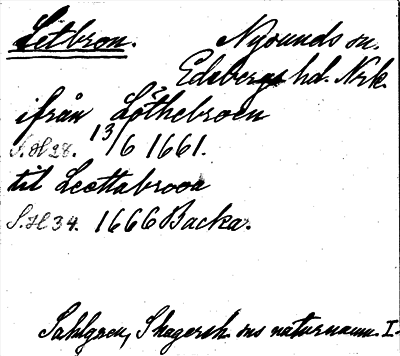 Letbron.
Nysunds sn.
Edsbergs hd. Nrk.
ifrån Löthebroen
S.H 28. 13/6 1661.
til Leottabrooa
S.H 34. 1666 Backa.
Sahlgren, Skagersh. sns naturnamn. I.